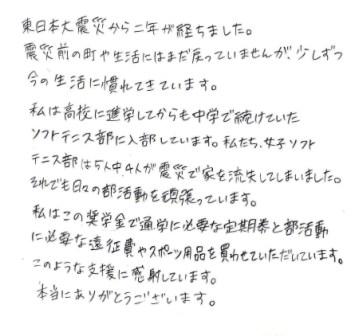 東日本大震災から二年が経ちました。
震災前の町や生活にはまだ戻っていませんが、少しずつ
今の生活に慣れてきています。
私は高校に進学してからも中学で続けていた
ソフトテニス部に入部しています。私たち、女子ソフト
テニス部は5人中、4人が震災で家を流失してしまいました。
それでも日々の部活動を頑張っています。
私はこの奨学金で通学に必要な定期券と部活動
に必要な遠征費やスポーツ用品を買わせていただいています。
このような支援に感謝しています。
本当にありがとうございます。